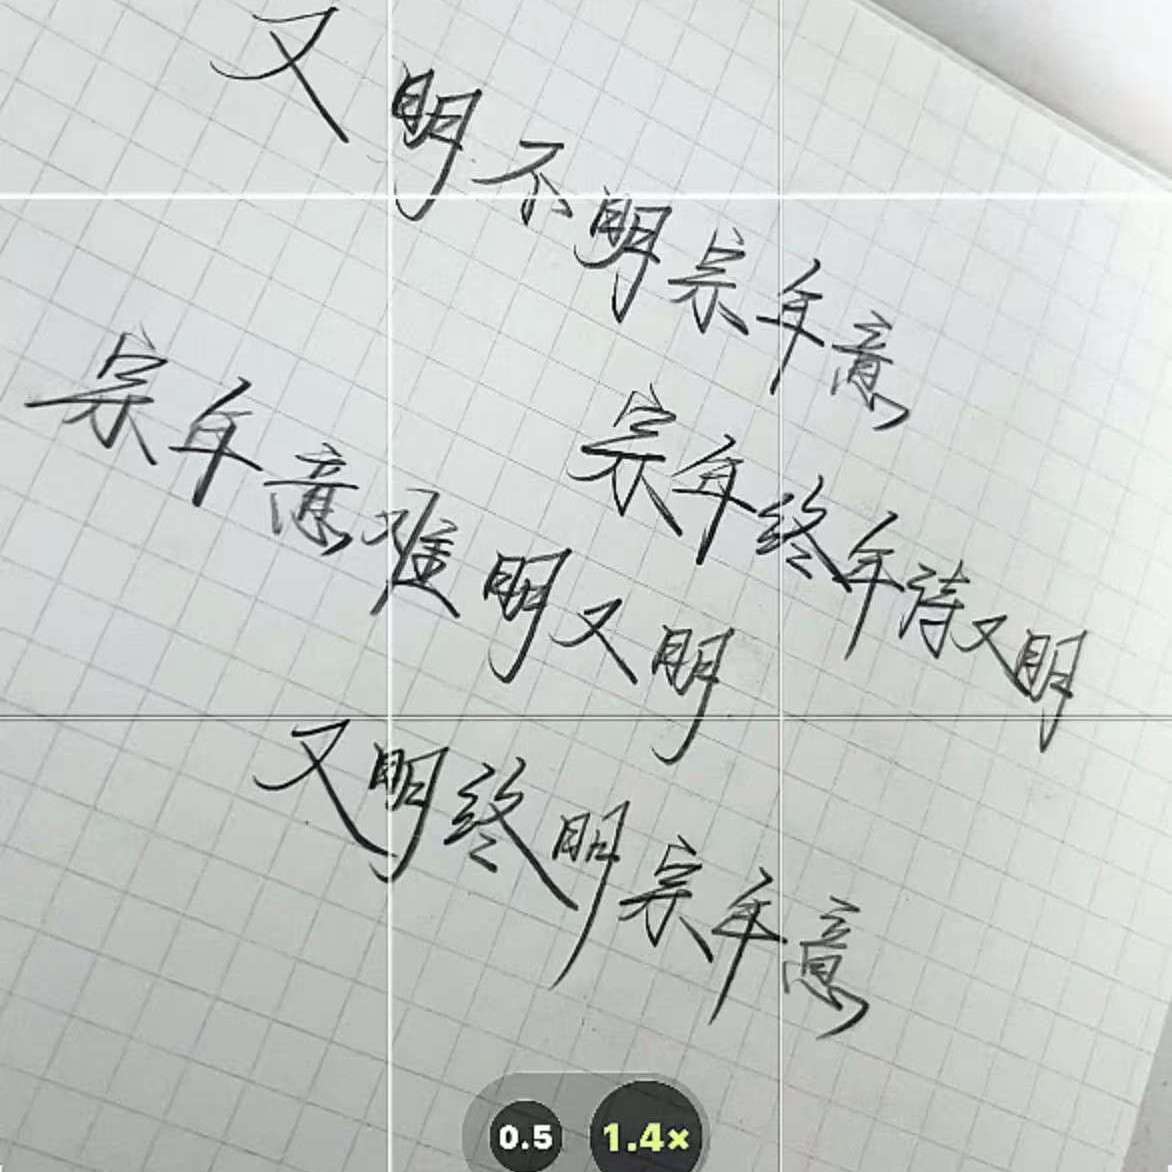 又明不明宗年意
宗年意难明又明
宗年终年待又明
又明终明宗年意
0.5 1.4×